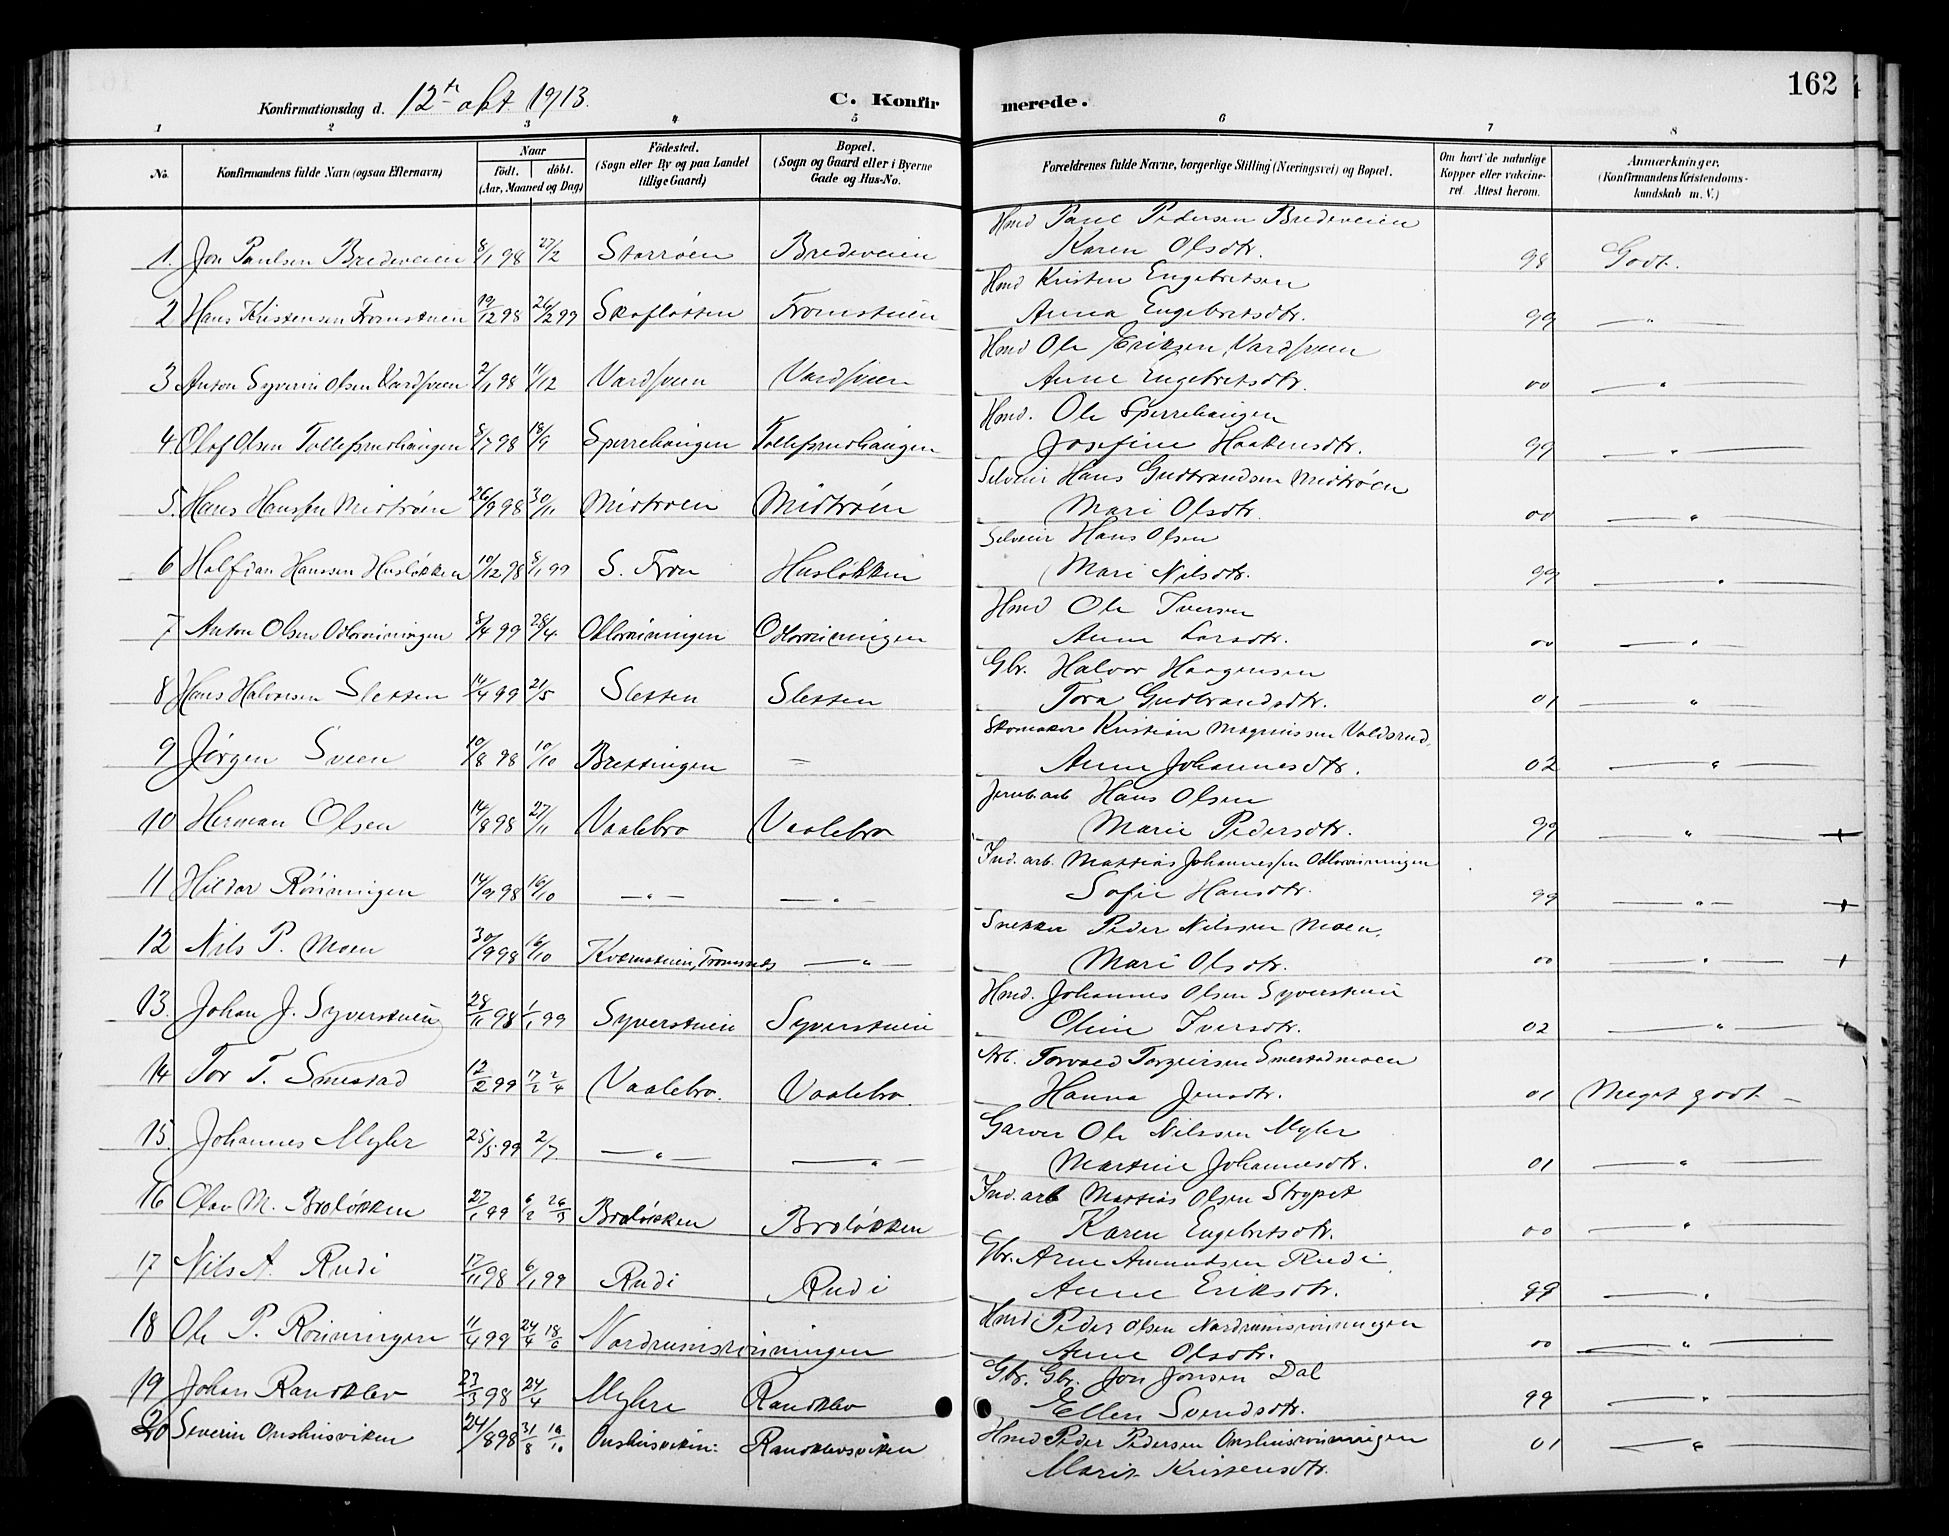 162
Konfirmationsdag d. 12te okt. 1913.
C. Konfirmerede.
1 2 3 4 5 6 7 8
No.
Konfirmandens fulde Navn (ogsaa Efternavn)
Naar
født. døbt.
(Aar, Maaned og Dag)
Fødested.
(Sogn eller By og paa Landet
tillige Gaard)
Bopæl.
(Sogn og Gaard eller i Byerne
Gade og Hus-No.
Forældrenes fulde Navne, borgerlige Stilling (Næringsvei) og Bopæl.
Om havt de naturlige
Kopper eller vakcine-
ret. Attest herom.
Anmærkninger,
(Konfirmandens Kristendoms-
kundskab m. V.)
Hmd Paul Pedersen Bredeveien
1. Jon Paulsen Bredeveien 8/1 98 27/2 Storrøen Bredeveien Karen Olsdtr. 98 Godt.
Hmd Kristen Engebretsen
2 Hans Kristensen Fronstuen 19/12 98 26/2 99 Skofløtten Fronstuen Anna Engebretsdtr. 99 — " —
Hmd Ole Eriksen Vardsveen
3 Anton Syverin Olsen Vardsveen 2/1 98 11/12 Vardsveen Vardsveen Anne Engebretsdtr. 00 — " —
Hmd. Ole Sperrehaugen
4 Olaf Olsen Tollefsrudhaugen 8/7 98 18/9 Sperrehaugen Tollefsrudhaugen Josefine Haakensdtr. 99 — " —
Selveier Hans Gudbrandsen Midtrøen
5. Hans Hanssen Midtrøen 26/9 98 30/11 Midtroen Midtrøen Mari Olsdtr. 00 — " —
Selveier Hans Olsen
6 Halfdan Hanssen Husløkken 10/12 98 8/1 99 S. Fron Husløkken Mari Nilsdtr. 99 — " —
Hmd Ole Iversen
7 Anton Olsen Odlorønningen 8/4 99 28/4 Odlorønningen Odlorønningen Anne Larsdtr. 00 — " —
Gbr. Halvor Haagensen
8 Hans Halvorsen Sletten 14/4 99 21/5 Sletten Sletten Tora Gudbrandsdtr. 01 — " —
Skomaker Kristian Magnussen Voldsrud,
9 Jørgen Sveen 10/8 98 10/10 Brettingen = Anne Johannesdtr. 02 — " —
Jernb.arb Hans Olsen
10 Herman Olsen 14/8 98 27/11 Vaalebro Vaalebro Marie Pedersdtr. 99 — " — +
Ind. arb. Mattias Johannessen Odlorønningen
11 Hildor Rønningen 14/9 98 16/10 — " — — " — Sofie Hansdtr. 99 — " — +
Snekker Peder Nilssen Moen,
12 Nils P. Moen 30/9 98 16/10 Kvernstuen, Tromsnes — " — Mari Olsdtr. 00 — " — +
Hmd. Johannes Olsen Syverstuen
13. Johan J. Syverstuen 28/11 98 1/1 99 Syverstuen Syverstuen Oline Iversdtr. 02 — " — +
Arb. Torvald Torgersen Smestadmoen
14 Tor T. Smestad 12/2 99 17/2 2/4 Vaalebro. Vaalebro. Hanna Jensdtr. 01 Meget godt —
Garver Ole Nilssen Myhr
15. Johannes Myhr 25/5 99 2/7 — " — — " — Martine Johannesdtr. 01 — " —
Ind. arb Mattias Olsen Strypet
16 Olav M. Broløkken 27/1 99 6/2 26/3 Broløkken Broløkken Karen Engebretsdtr. 00 — " —
Gbr. Arne Amundsen Rudi
17 Nils A. Rudi 17/11 98 6/1 99 Rudi Rudi Anne Eriksdtr. 99 — " —
Hmd. Peder Olsen Nordrumsrønningen
18 Ole P. Rønningen 11/4 99 24/4 18/6 Nordrumsrønningen Anne Olsdtr. 00 — " —
Gbr. Gbr. Jon Jonsen Dal
19 Johan Randklev 23/3 98 24/4 Myhre Randklev Ellen Svendsdtr. 99 — " —
Hmd Peder Pedersen Onshusrønningen
20 Severin Onshusviken 24/8 98 31/8 16/10 Onshusviken: Randklevsviken Marit Kristensdtr. 01 — " —